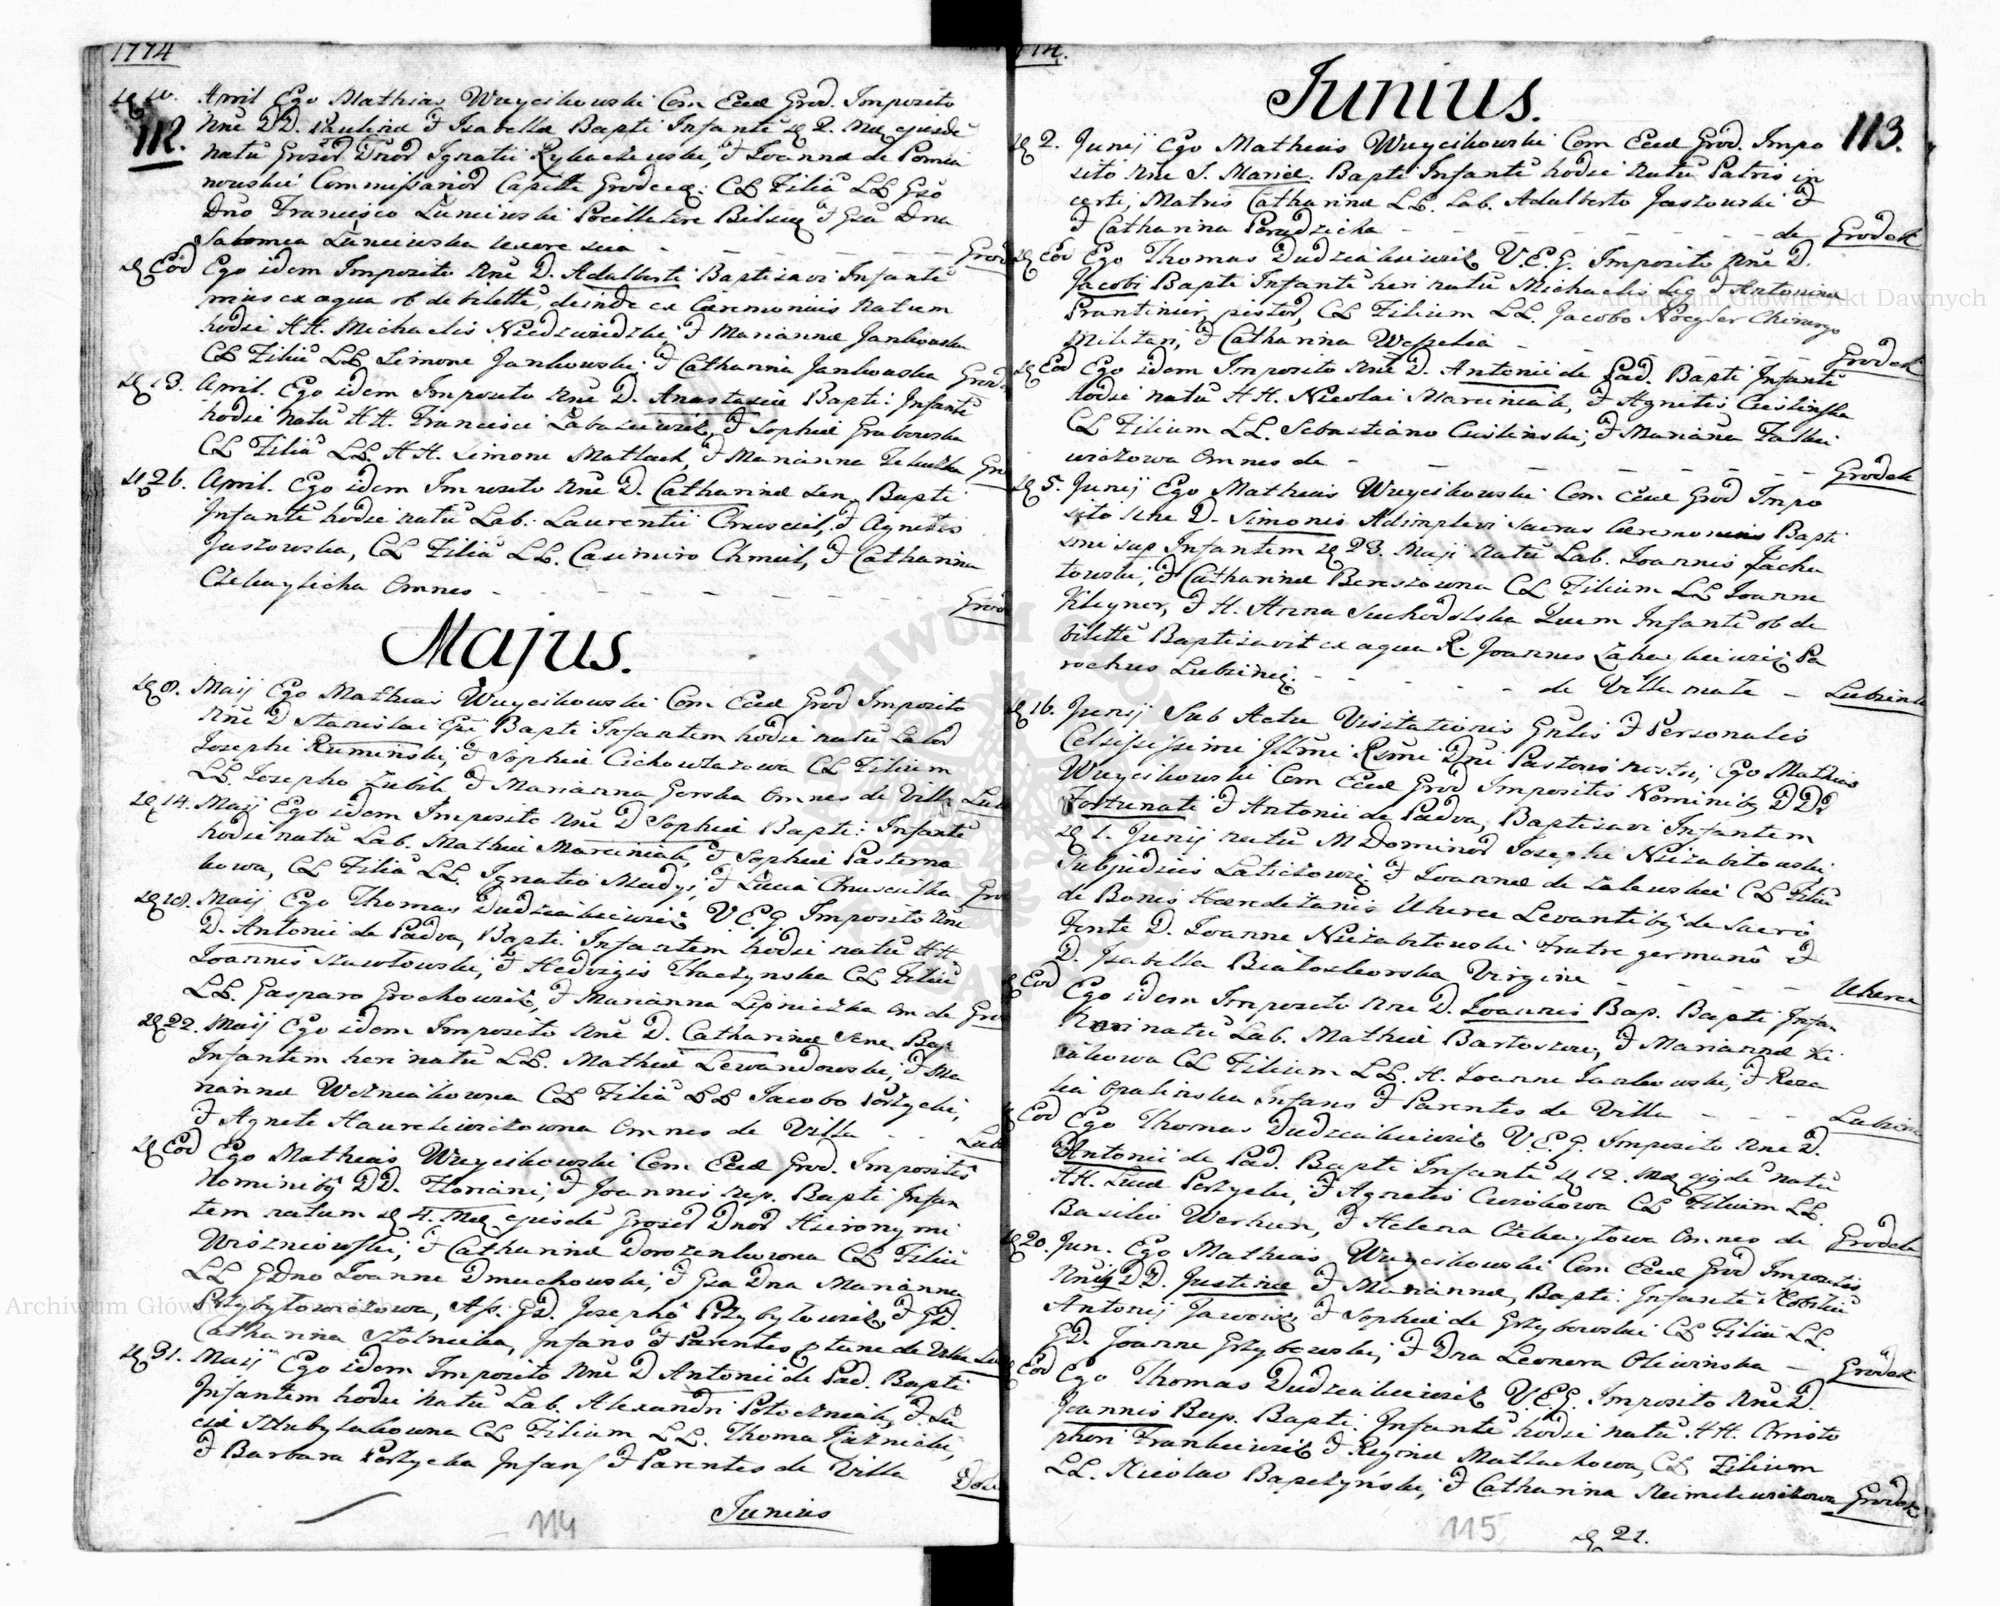 1774
112.
d 10. April Ego Mathias Wuycikowski Com Eccl Grod. Imposito
Nne DD. Paulinæ & Isabellæ Bapti Infante d 2. Mæ ejusde
natu Gnosor Dnor Ignatii Rybaczewski, & Joannæ de Pomia
nowskie Commissarior Capitli Grodeceñ: CL Filia LL Gso
Dno Francisco Lunciewski & Gsa Dna
Salomea Lunciewska uxore sua - - - - - Grod
d Eod Ego idem Imposito Nne D. Adalberti Baptisavi Infante
prius ex aqua ob debilitte, deinde ex Ceremoniis natum
hodie HH. Michaelis Niedzwiedzki & Mariannæ Jankowska
CL Filiu LL Simone Jankowski & Catharina Jankowska Grod
d 13. April. Ego idem Imposito Nne D. Anastasiæ Bapti: Infante
hodie natu HH. Francisci Labaziewicz, & Sophiæ Grabowska
CL Filia LL. HH. Simone Matlach, & Marianna Gro
d 26. April. Ego idem Imposito Nne D. Catharinæ Sen. Bapti
Infante hodie natu Lab: Laurentii Chruscicil, & Agnetis
Juszowska, CL Filia LL. Casimiro Chmiel, & Catharina
Omnes - - - - - - - - Grod
Majus.
d 8. Maij Ego Mathias Wuycikowski Com Eccl Grod Imposito
Nne D Stanislai Epi Bapti Infantem hodie natu Labor
Josephi Ruminski, & Sophiæ Cichowlazowa CL Filium
LL Josepho Zubik, & Marianna Gorska Omnes de Villa Lub
d 14. Maij Ego idem Imposito Nne D Sophiæ Bapti: Infante
hodie natu Lab. Mathiæ Marciniak, & Sophiæ Pasterna
kowa, CL Filia LL. Ignatio Madys, & Lucia Chruscielka Gro
d 18. Maij Ego Thomas Dudziakiewicz V.E.G. Imposito Nne
D. Antonii de Padva, Bapti. Infantem hodie natu HH.
Joannis Szawlowski, & Hedvigis Tkaczynska CL Filiu
LL. Gasparo Grochowicz, & Marianna Lipnicka Om de Gro
d 22. Maij Ego idem Imposito Nne D. Catharinæ Sene. Bap.
Infantem heri natu LL. Mathiæ Lewandowski, & Ma
riannæ Wozniakowna CL Filia LL Jacobo Perzycki,
& Agnete Omnes de Villa - - Lub
d Eod Ego Mathias Wuycikowski Com Eccl Grod. Impositis
Nominibq DD. Floriani, & Joannis Nep. Bapti Infan
tem natum d 4. Mæ ejusde Gnosor Dnor Hieronymi
Wiszniowski, & Catharinæ Dorozenkowna CL Filiu
LL GDno Joanne Dmuchowski, & Gsa Dna Marianna
Przybylowiczowa, Ass. GD. Josepho Przybylowicz, & GD.
Catharina Stolnicka, Infans & Parentes p tunc de Villa Lub
d 31. Maij Ego idem Imposito Nne D Antonii de Pad. Bapti
Infantem hodie natu Lab. Alexandri Potoczniak, & Lu
ciæ CL Filium LL. Thoma Kuznicki,
& Barbara Perzycka Infans & Parentes de Villa Dob
Junius
114
774.
Junius.
113.
d 2. Junij Ego Mathias Wuycikowski Com Eccl Grod. Impo
sito Nne S. Mariæ. Bapti Infante hodie natu Patris in
certi, Matris Catharinæ LL. Lab. Adalberto Juszowski &
& Catharina Perydzicha - - - - - de Grodek
d Eod Ego Thomas Dudziakiewicz V.E.G. Imposito Nne D.
Jacobi Bapti Infante heri natu Michaelis Leg & Antonina
Prantinier, pistor, CL Filium LL. Jacobo Noegler Chirurgo
Militari, & Catharina Wesselia - - - - - Grodek
d Eod Ego idem Imposito Nne D. Antonii de Pad. Bapti Infante
hodie natu HH. Nicolai Marciniak, & Agnetis Cieslinska
CL Filium LL. Sebastiano Cieslinski, & Mariana Falki
wiczowa Omnes de - - - - - - Grodek
d 5. Junij Ego Mathias Wuycikowski Com Eccl Grod Impo
sito Nne D. Simonis Adimplevi sacras Ceremonias Bapti
smi sup Infantem d 23. Maji natu Lab. Joannis Lacha
towski, & Catharinæ Bereszowna CL Filium LL Joanne
Kleyner, & H. Anna Suchodolska Quem Infante ob de
bilitte Baptisavit ex aqua R. Joannes Zakrzykiewicz Pa
rochus Lubiniẽ. - - - - - de Villa nate - Lubinia
d 16. Junij Sub Actu Visitationis Gnlis & Personalis
Celsissisimi Illmi Rsmi Dni Pastoris nostri, Ego Mathias
Wuycikowski Com Eccl Grod Impositis Nominibq DD
Fortunati & Antonii de Padva, Baptisavi Infantem
d 1. Junij natu M Dominor Josephi Niezabitowski
Subjudicis Laticzowẽ & Joannæ de Zalewskie CL Filiu
de Bonis Hæreditariis Uherce Levantibq de Sacro
Fonte D. Joanne Niezabitowski Fratre germano &
D. Isabella Bialoskorska Virgine - - - - Uherce
d Eod Ego idem Imposito Nne D. Joannis Bap. Bapti Infan.
heri natu Lab. Mathiæ Bartoszow, & Mariannæ Ki
CL Filium LL. H. Joanne Jankowski, & Roza
lia Opalinska Infans & Parentes de Villa - - - Lubinia
d Eod Ego Thomas Dudziakiewicz V.E.G. Imposito Nne D.
Antonii de Pad. Bapti Infante d 12. Mæ ejusde natu
HH. Lucæ Perzycki, & Agnetis Cwiokowa CL Filium LL.
Basilio Werhun, & Helena Omnes de Grodek
d 20. Jun. Ego Mathias Wuycikowski Com Eccl Grod Impositis
Nnibq DD. Justinæ & Mariannæ, Bapti: Infante Nobiliu
Antonij Jaworski, & Sophiæ de Grzybowskie CL Filia LL.
GD. Joanne Grzybowski, & Dna Leonora Oliwinska - Grodek
d Eod Ego Thomas Dudziakiewicz V.E.G. Imposito Nne D.
Joannis Bap. Bapti. Infante hodie natu HH. Christo
phori Frankiewicz & Reginæ Matlachowa, CL Filium
LL. Nicolao Bapczynski, & Catharina Grodek
115
d 21.
Archiwum Główne Akt Dawnych
Archiwum Główne Akt Dawnych